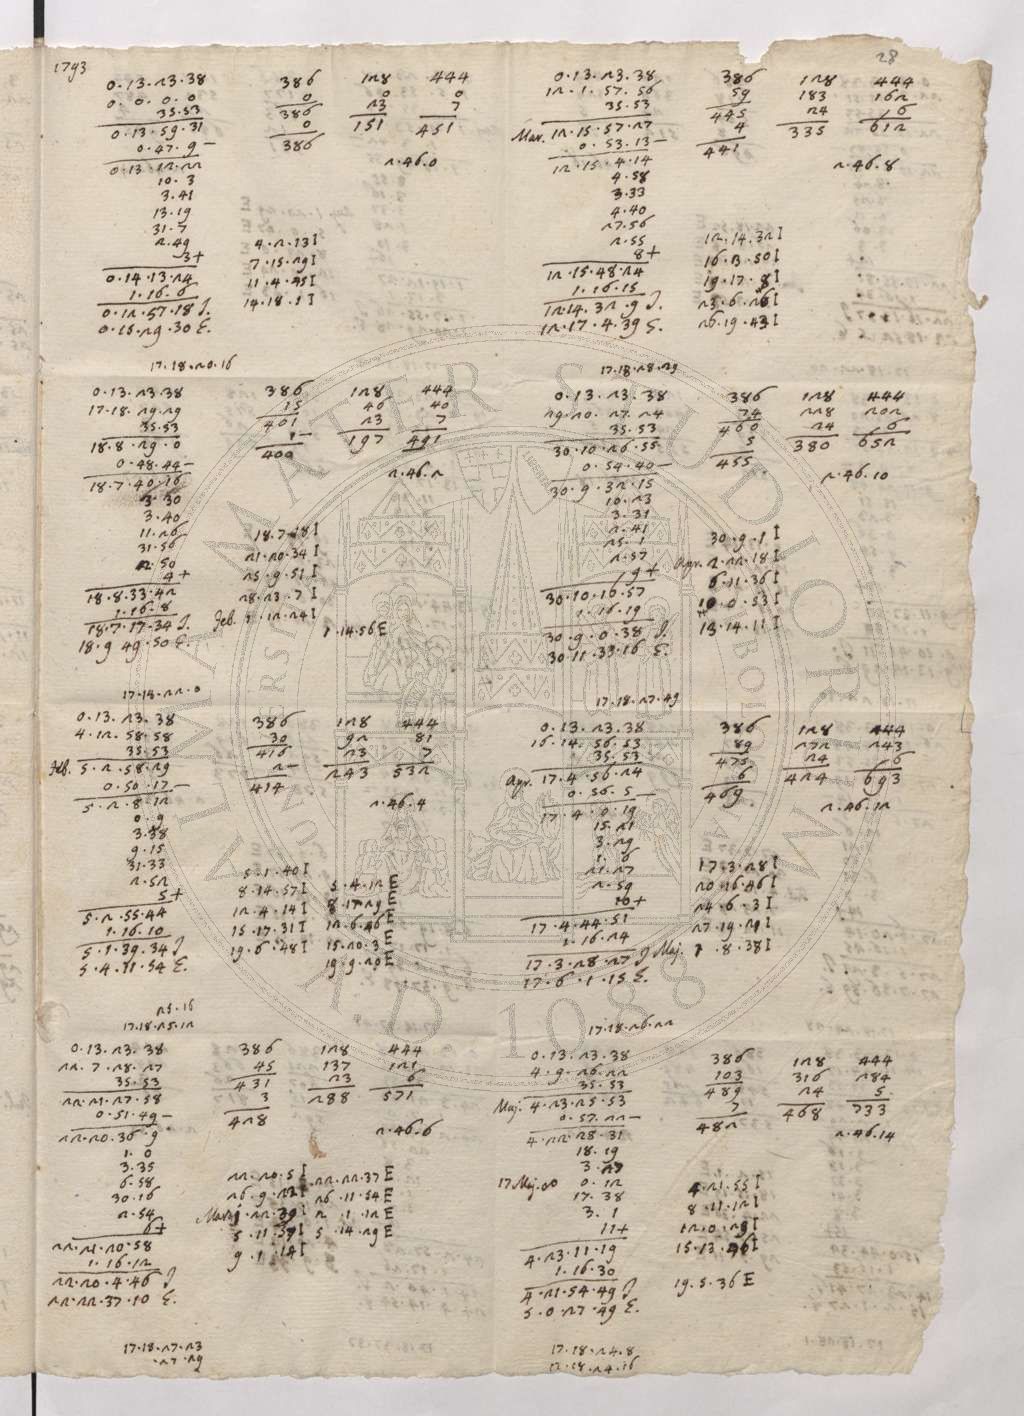 1793
28
0.13.23.38
0.0.0.0
35.53
0.13.59.31
0.47.9-
0.13.12.22
10.3
3.41
13.19
31.7
2.49
3+
0.14.13.24
1.16.6
0.12.57.18 I.
0.15.29.30 E.
386 128 444
0 0 0
386 23 7
0 151 451
386
2.46.0
4.2.13 I
7.15.29 I
11.4.45 I
14.18.1 I
17.18.20.16
0.13.23.38
17.18.29.29
35.53
18.8.29.0
0.48.44-
18.7.40.16
3.30
3.40
11.26
31.56
2.50
4+
18.8.33.42
1.16.8
18.7.17.34 I.
18.9.49.50 E.
386 128 444
15 46 40
401 23 7
1- 197 491
400
2.46.2
18.7.18 I
21.20.34 I
25.9.51 I
28.23.7 I
Feb. 1.12.24 I
1.14.56 E
17.18.22.0
0.13.23.38
4.12.58.58
35.53
Feb. 5.2.58.29
0.50.17-
5.2.8.12
0.9
3.38
9.15
31.33
2.52
5+
5.2.55.44
1.16.10
5.1.39.34 I
5.4.11.54 E.
386 128 444
30 92 81
416 23 7
2- 243 532
414
2.46.4
5.1.40 I 5.4.12 E
8.14.57 I 8.17.29 E
12.4.14 I 12.6.46 E
15.17.31 I 15.20.3 E
19.6.48 I 19.9.20 E
25.16
17.18.25.12
0.13.23.38
22.7.28.27
35.53
22.21.27.58
0.51.49-
22.20.36.9
1.0
3.35
6.58
30.16
2.54
6+
22.21.20.58
1.16.12
22.20.4.46 I
22.22.37.10 E.
386 128 444
45 137 121
431 23 6
3 288 571
428
2.46.6
22.20.5 I 22.22.37 E
26.9.22 I 26.11.54 E
Martij 1.22.39 I 2.1.12 E
5.11.57 I 5.14.29 E
9.1.14 I
17.18.27.23
.27.29
0.13.23.38
12.1.57.56
35.53
Mar. 12.15.57.27
0.53.13-
12.15.4.14
4.58
3.33
4.40
27.56
2.55
8+
12.15.48.24
1.16.15
12.14.32.9 I.
12.17.4.39 E.
386 128 444
59 183 162
445 24 6
4 335 612
441
2.46.8
12.14.32 I
16.3.50 I
19.17.8 I
23.6.26 I
26.19.43 I
17.18.28.29
0.13.23.38
29.20.27.24
35.53
30.10.26.55
0.54.40-
30.9.32.15
10.23
3.31
2.41
25.1
2.57
9+
30.10.16.57
1.16.19
30.9.0.38 I.
30.11.33.16 E.
386 128 444
74 228 202
460 24 6
5 380 652
455
2.46.10
30.9.1 I
Apr. 2.22.18 I
6.11.36 I
10.0.53 I
13.14.11 I
17.18.27.49
0.13.23.38
16.14.56.53
35.53
Apr. 17.4.56.24
0.56.5-
17.4.0.19
15.21
3.29
1.6
21.27
2.59
10+
17.4.44.51
1.16.24
17.3.28.27 I
17.6.1.15 E.
386 128 444
89 272 243
475 24 6
6 424 693
469
2.46.12
17.3.28 I
20.16.46 I
24.6.3 I
27.19.21 I
Maj. 1.8.38 I
17.18.26.22
0.13.23.38
4.9.26.22
35.53
Maj. 4.23.25.53
0.57.22-
4.22.28.31
18.19
3.27
17 Maj. 0.12
17.38
3.1
11+
4.23.11.19
1.16.30
4.21.54.49 I
5.0.27.49 E.
386 128 444
103 316 284
489 24 5
7 468 733
482
2.46.14
4.21.55 I
8.11.12 I
12.0.29 I
15.13.46 I
19.5.36 E
17.18.24.8
17.18.24.16
ALMA MATER STUDIORUM
A.D. 1088